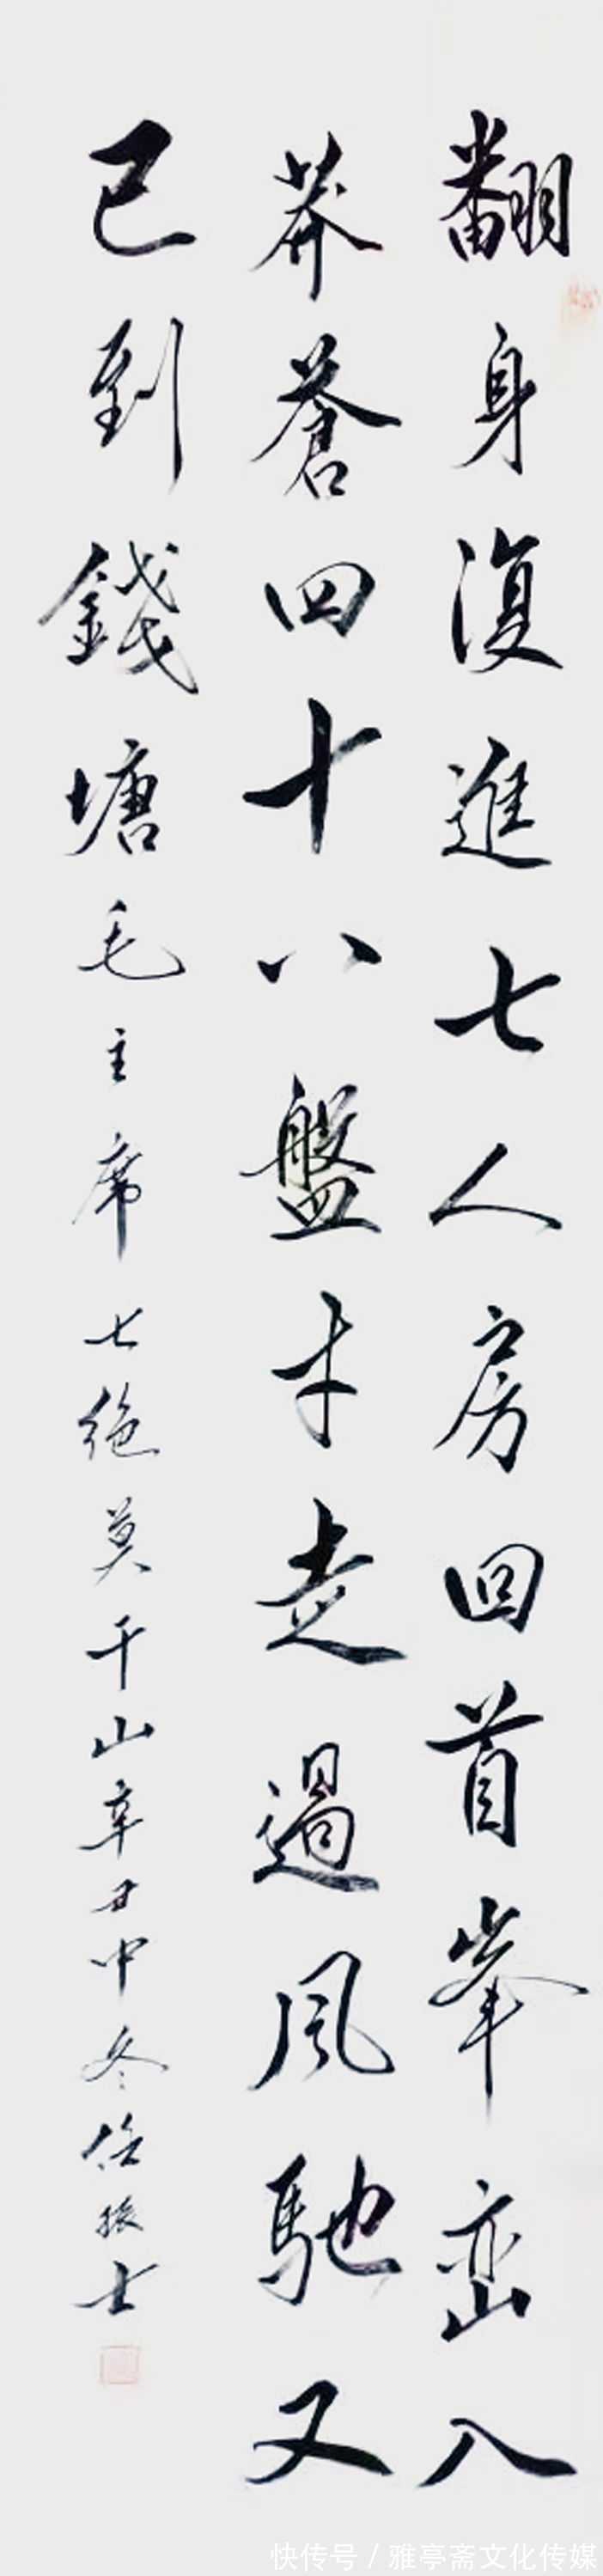 翻身復進七人房回首峯巒入
莽蒼四十八盤才走過風馳又
已到錢塘毛主席七絶莫干山辛丑中冬振士
快传号 / 雅亭斋文化传媒